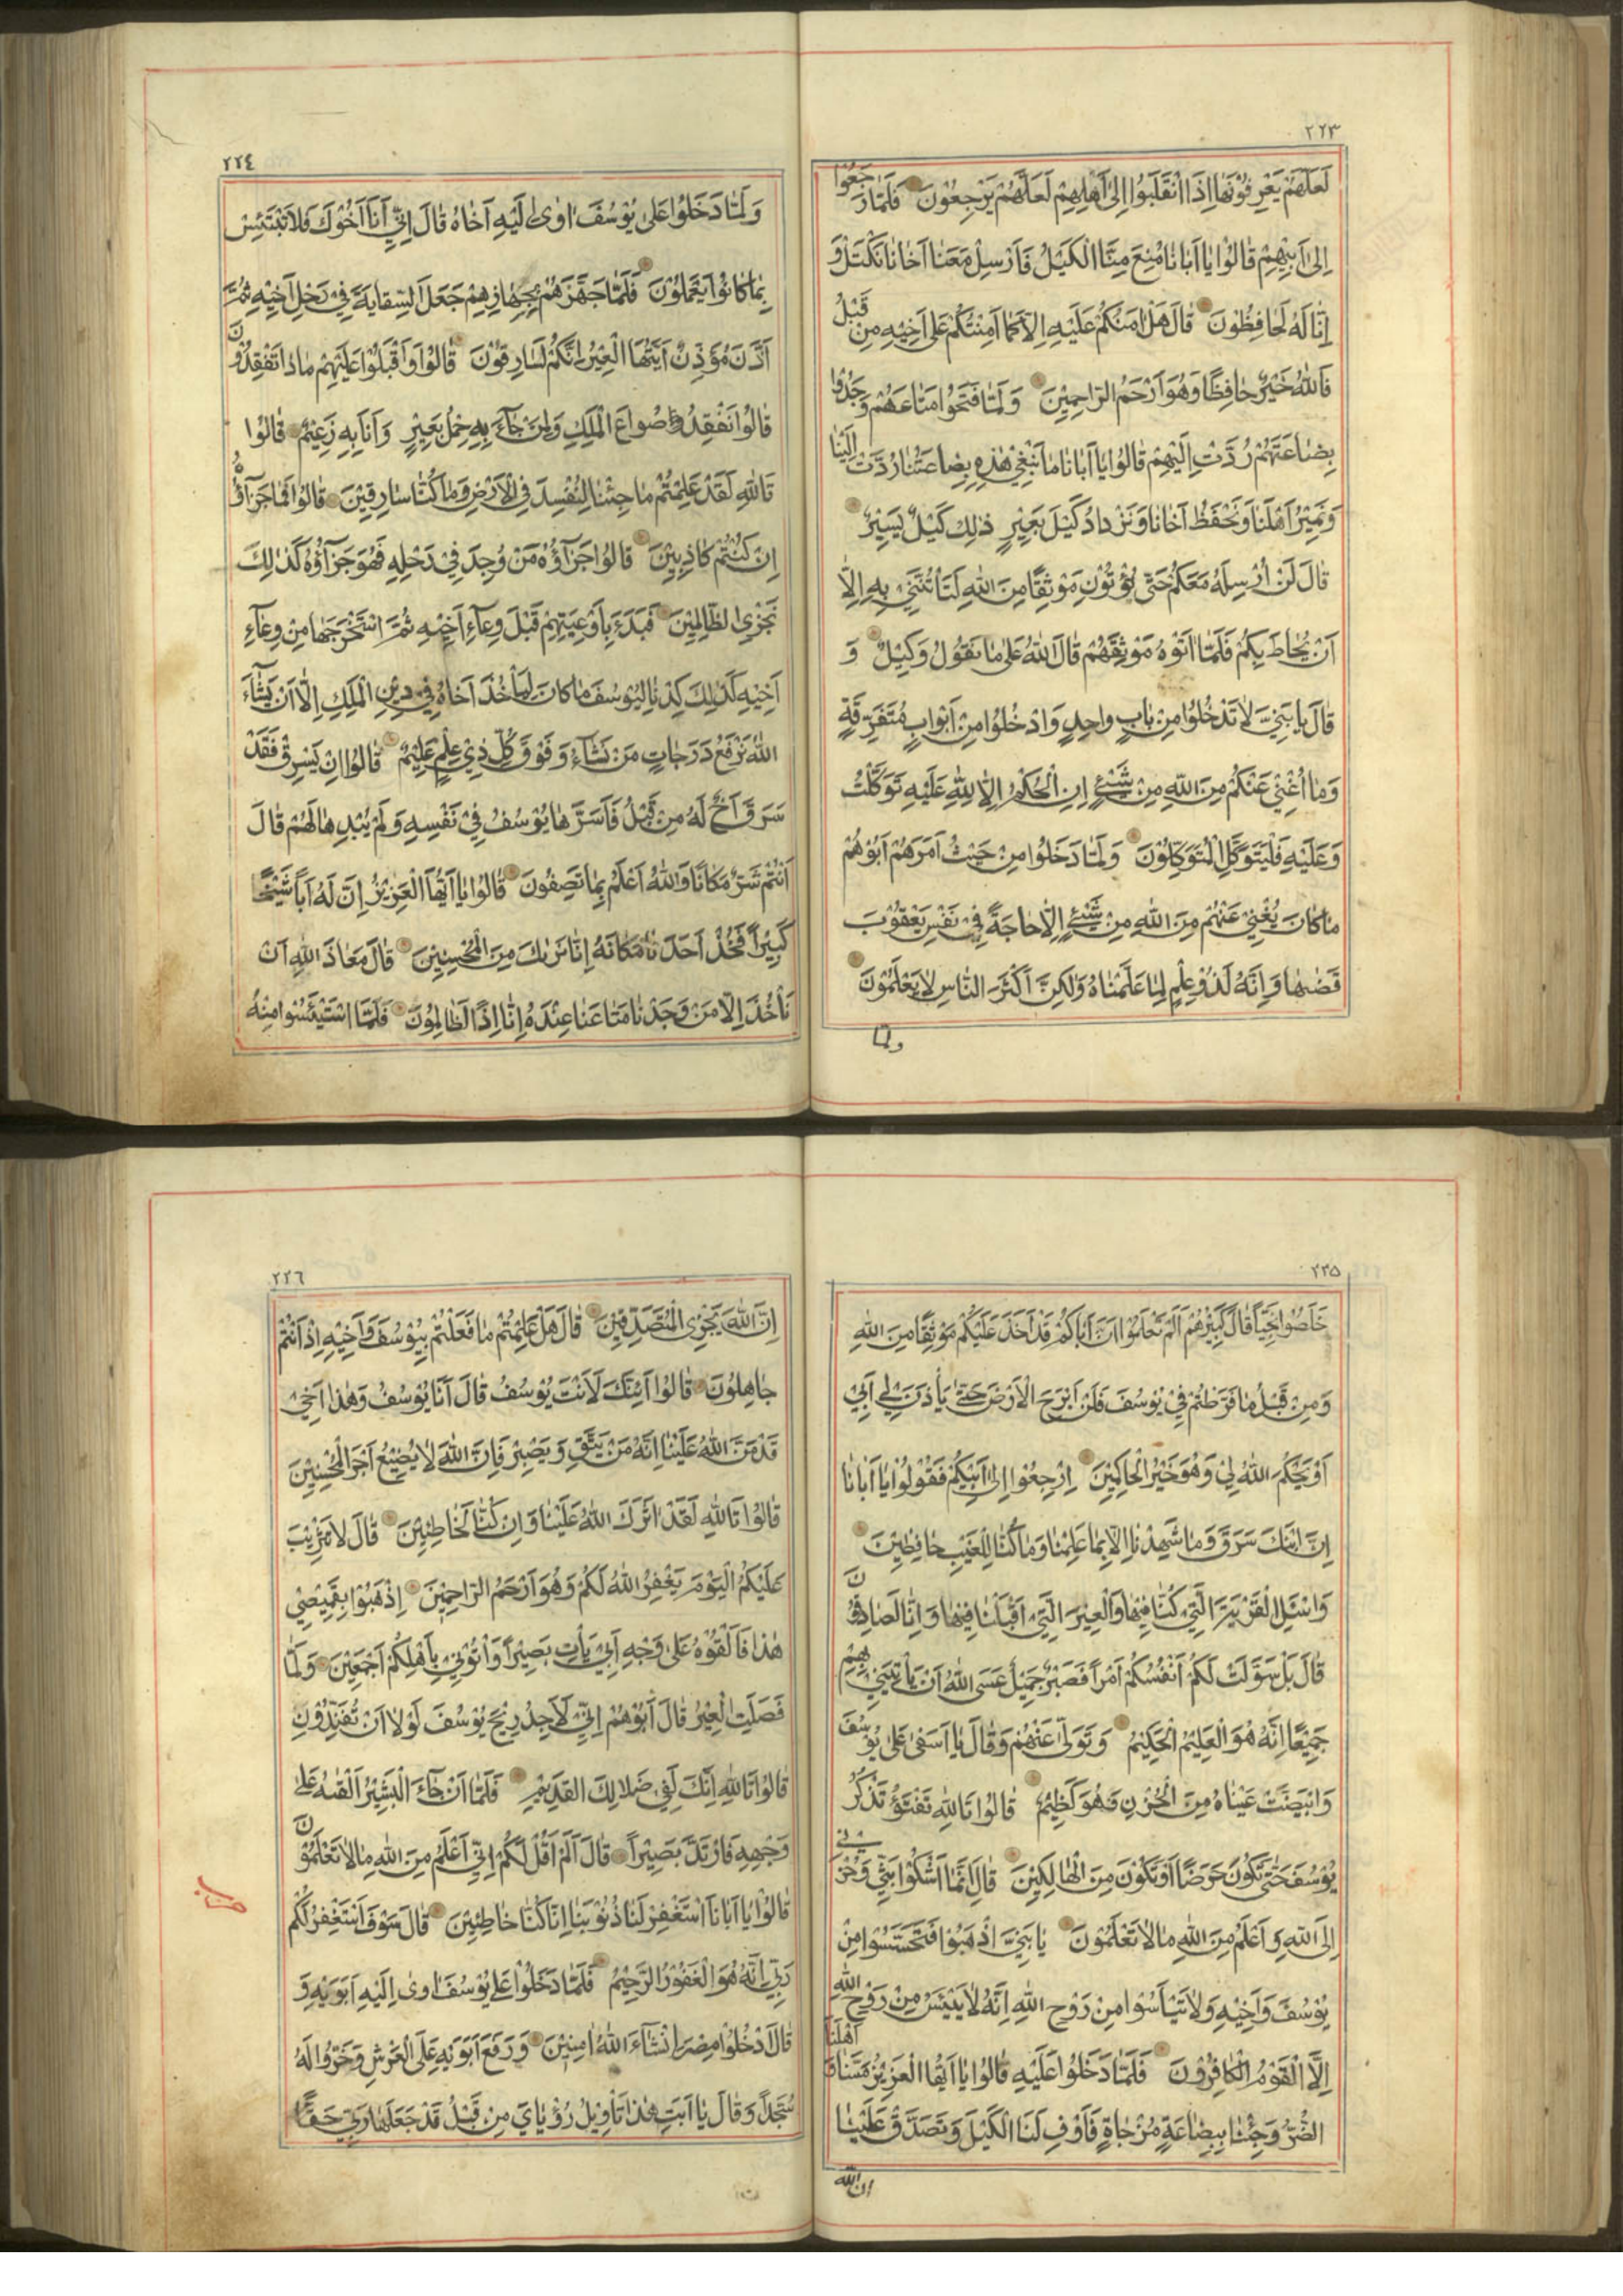 ٢٢٣
لَعَلَّهُمْ يَعْرِفُونَهَا اِذَا انْقَلَبُوا اِلىٰ اَهْلِهِمْ لَعَلَّهُمْ يَرْجِعُونَ فَلَمَّا رَجَعُوا
اِلىٰ اَبِيهِمْ قٰالُوا يٰا اَبٰانٰا مُنِعَ مِنَّا الْكَيْلُ فَاَرْسِلْ مَعَنٰا اَخٰانٰا نَكْتَلْ وَ
اِنّٰا لَهُ لَحٰافِظُونَ قٰالَ هَلْ اٰمَنُكُمْ عَلَيْهِ اِلّٰا كَمٰا اَمِنْتُكُمْ عَلىٰ اَخِيهِ مِنْ قَبْلُ
فَاللّٰهُ خَيْرٌ حٰافِظًا وَهُوَ اَرْحَمُ الرّٰاحِمِينَ وَلَمّٰا فَتَحُوا مَتٰاعَهُمْ وَجَدُوا
بِضٰاعَتَهُمْ رُدَّتْ اِلَيْهِمْ قٰالُوا يٰا اَبٰانٰا مٰا نَبْغِي هٰذِهِ بِضٰاعَتُنٰا رُدَّتْ اِلَيْنٰا
وَنَمِيرُ اَهْلَنٰا وَنَحْفَظُ اَخٰانٰا وَنَزْدٰادُ كَيْلَ بَعِيرٍ ذٰلِكَ كَيْلٌ يَسِيرٌ
قٰالَ لَنْ اُرْسِلَهُ مَعَكُمْ حَتّٰى تُؤْتُونِ مَوْثِقًا مِنَ اللّٰهِ لَتَاْتُنَّنِي بِهِ اِلّٰا
اَنْ يُحٰاطَ بِكُمْ فَلَمّٰا اٰتَوْهُ مَوْثِقَهُمْ قٰالَ اللّٰهُ عَلىٰ مٰا نَقُولُ وَكِيلٌ وَ
قٰالَ يٰا بَنِيَّ لٰا تَدْخُلُوا مِنْ بٰابٍ وٰاحِدٍ وَادْخُلُوا مِنْ اَبْوٰابٍ مُتَفَرِّقَةٍ
وَمٰا اُغْنِي عَنْكُمْ مِنَ اللّٰهِ مِنْ شَيْءٍ اِنِ الْحُكْمُ اِلّٰا لِلّٰهِ عَلَيْهِ تَوَكَّلْتُ
وَعَلَيْهِ فَلْيَتَوَكَّلِ الْمُتَوَكِّلُونَ وَلَمّٰا دَخَلُوا مِنْ حَيْثُ اَمَرَهُمْ اَبُوهُمْ
مٰا كٰانَ يُغْنِي عَنْهُمْ مِنَ اللّٰهِ مِنْ شَيْءٍ اِلّٰا حٰاجَةً فِي نَفْسِ يَعْقُوبَ
قَضٰيهٰا وَاِنَّهُ لَذُو عِلْمٍ لِمٰا عَلَّمْنٰاهُ وَلٰكِنَّ اَكْثَرَ النّٰاسِ لٰا يَعْلَمُونَ
ولما
٢٢٤
وَلَمّٰا دَخَلُوا عَلىٰ يُوسُفَ اٰوىٰ اِلَيْهِ اَخٰاهُ قٰالَ اِنِّي اَنَا اَخُوكَ فَلٰا تَبْتَئِسْ
بِمٰا كٰانُوا يَعْمَلُونَ فَلَمّٰا جَهَّزَهُمْ بِجَهٰازِهِمْ جَعَلَ السِّقٰايَةَ فِي رَحْلِ اَخِيهِ ثُمَّ
اَذَّنَ مُؤَذِّنٌ اَيَّتُهَا الْعِيرُ اِنَّكُمْ لَسٰارِقُونَ قٰالُوا وَاَقْبَلُوا عَلَيْهِمْ مٰاذٰا تَفْقِدُونَ
قٰالُوا نَفْقِدُ صُوٰاعَ الْمَلِكِ وَلِمَنْ جٰآءَ بِهِ حِمْلُ بَعِيرٍ وَاَنَا بِهِ زَعِيمٌ قٰالُوا
تَاللّٰهِ لَقَدْ عَلِمْتُمْ مٰا جِئْنٰا لِنُفْسِدَ فِي الْاَرْضِ وَمٰا كُنّٰا سٰارِقِينَ قٰالُوا فَمٰا جَزٰآؤُهُ
اِنْ كُنْتُمْ كٰاذِبِينَ قٰالُوا جَزٰآؤُهُ مَنْ وُجِدَ فِي رَحْلِهِ فَهُوَ جَزٰآؤُهُ كَذٰلِكَ
نَجْزِي الظّٰالِمِينَ فَبَدَءَ بِاَوْعِيَتِهِمْ قَبْلَ وِعٰآءِ اَخِيهِ ثُمَّ اسْتَخْرَجَهٰا مِنْ وِعٰآءِ
اَخِيهِ كَذٰلِكَ كِدْنٰا لِيُوسُفَ مٰا كٰانَ لِيَاْخُذَ اَخٰاهُ فِي دِينِ الْمَلِكِ اِلّٰا اَنْ يَشٰآءَ
اللّٰهُ نَرْفَعُ دَرَجٰاتٍ مَنْ نَشٰآءُ وَفَوْقَ كُلِّ ذِي عِلْمٍ عَلِيمٌ قٰالُوا اِنْ يَسْرِقْ فَقَدْ
سَرَقَ اَخٌ لَهُ مِنْ قَبْلُ فَاَسَرَّهٰا يُوسُفُ فِي نَفْسِهِ وَلَمْ يُبْدِهٰا لَهُمْ قٰالَ
اَنْتُمْ شَرٌّ مَكٰانًا وَاللّٰهُ اَعْلَمُ بِمٰا تَصِفُونَ قٰالُوا يٰا اَيُّهَا الْعَزِيزُ اِنَّ لَهُ اَبًا شَيْخًا
كَبِيرًا فَخُذْ اَحَدَنٰا مَكٰانَهُ اِنّٰا نَرٰيكَ مِنَ الْمُحْسِنِينَ قٰالَ مَعٰاذَ اللّٰهِ اَنْ
نَاْخُذَ اِلّٰا مَنْ وَجَدْنٰا مَتٰاعَنٰا عِنْدَهُ اِنّٰا اِذًا لَظٰالِمُونَ فَلَمَّا اسْتَيْئَسُوا مِنْهُ
٢٢٥
خَلَصُوا نَجِيًّا قٰالَ كَبِيرُهُمْ اَلَمْ تَعْلَمُوا اَنَّ اَبٰاكُمْ قَدْ اَخَذَ عَلَيْكُمْ مَوْثِقًا مِنَ اللّٰهِ
وَمِنْ قَبْلُ مٰا فَرَّطْتُمْ فِي يُوسُفَ فَلَنْ اَبْرَحَ الْاَرْضَ حَتّٰى يَاْذَنَ لِي اَبِي
اَوْ يَحْكُمَ اللّٰهُ لِي وَهُوَ خَيْرُ الْحٰاكِمِينَ اِرْجِعُوا اِلىٰ اَبِيكُمْ فَقُولُوا يٰا اَبٰانٰا
اِنَّ ابْنَكَ سَرَقَ وَمٰا شَهِدْنٰا اِلّٰا بِمٰا عَلِمْنٰا وَمٰا كُنّٰا لِلْغَيْبِ حٰافِظِينَ
وَاسْئَلِ الْقَرْيَةَ الَّتِي كُنّٰا فِيهٰا وَالْعِيرَ الَّتِي اَقْبَلْنٰا فِيهٰا وَاِنّٰا لَصٰادِقُونَ
قٰالَ بَلْ سَوَّلَتْ لَكُمْ اَنْفُسُكُمْ اَمْرًا فَصَبْرٌ جَمِيلٌ عَسَى اللّٰهُ اَنْ يَاْتِيَنِي بِهِمْ
جَمِيعًا اِنَّهُ هُوَ الْعَلِيمُ الْحَكِيمُ وَتَوَلّٰى عَنْهُمْ وَقٰالَ يٰا اَسَفىٰ عَلىٰ يُوسُفَ
وَابْيَضَّتْ عَيْنٰاهُ مِنَ الْحُزْنِ فَهُوَ كَظِيمٌ قٰالُوا تَاللّٰهِ تَفْتَؤُ تَذْكُرُ
يُوسُفَ حَتّٰى تَكُونَ حَرَضًا اَوْ تَكُونَ مِنَ الْهٰالِكِينَ قٰالَ اِنَّمٰا اَشْكُوا بَثِّي وَحُزْنِي
اِلَى اللّٰهِ وَاَعْلَمُ مِنَ اللّٰهِ مٰا لٰا تَعْلَمُونَ يٰا بَنِيَّ اذْهَبُوا فَتَحَسَّسُوا مِنْ
يُوسُفَ وَاَخِيهِ وَلٰا تَيْاَسُوا مِنْ رَوْحِ اللّٰهِ اِنَّهُ لٰا يَيْئَسُ مِنْ رَوْحِ اللّٰهِ
اِلَّا الْقَوْمُ الْكٰافِرُونَ فَلَمّٰا دَخَلُوا عَلَيْهِ قٰالُوا يٰا اَيُّهَا الْعَزِيزُ مَسَّنٰا وَاَهْلَنَا
الضُّرُّ وَجِئْنٰا بِبِضٰاعَةٍ مُزْجٰاةٍ فَاَوْفِ لَنَا الْكَيْلَ وَتَصَدَّقْ عَلَيْنٰا
ان الله
٢٢٦
اِنَّ اللّٰهَ يَجْزِي الْمُتَصَدِّقِينَ قٰالَ هَلْ عَلِمْتُمْ مٰا فَعَلْتُمْ بِيُوسُفَ وَاَخِيهِ اِذْ اَنْتُمْ
جٰاهِلُونَ قٰالُوا اَئِنَّكَ لَاَنْتَ يُوسُفُ قٰالَ اَنَا يُوسُفُ وَهٰذٰا اَخِي
قَدْ مَنَّ اللّٰهُ عَلَيْنٰا اِنَّهُ مَنْ يَتَّقِ وَيَصْبِرْ فَاِنَّ اللّٰهَ لٰا يُضِيعُ اَجْرَ الْمُحْسِنِينَ
قٰالُوا تَاللّٰهِ لَقَدْ اٰثَرَكَ اللّٰهُ عَلَيْنٰا وَاِنْ كُنّٰا لَخٰاطِئِينَ قٰالَ لٰا تَثْرِيبَ
عَلَيْكُمُ الْيَوْمَ يَغْفِرُ اللّٰهُ لَكُمْ وَهُوَ اَرْحَمُ الرّٰاحِمِينَ اِذْهَبُوا بِقَمِيصِي
هٰذٰا فَاَلْقُوهُ عَلىٰ وَجْهِ اَبِي يَاْتِ بَصِيرًا وَاْتُونِي بِاَهْلِكُمْ اَجْمَعِينَ وَلَمّٰا
فَصَلَتِ الْعِيرُ قٰالَ اَبُوهُمْ اِنِّي لَاَجِدُ رِيحَ يُوسُفَ لَوْلٰا اَنْ تُفَنِّدُونِ
قٰالُوا تَاللّٰهِ اِنَّكَ لَفِي ضَلٰالِكَ الْقَدِيمِ فَلَمّٰا اَنْ جٰآءَ الْبَشِيرُ اَلْقٰيهُ عَلىٰ
وَجْهِهِ فَارْتَدَّ بَصِيرًا قٰالَ اَلَمْ اَقُلْ لَكُمْ اِنِّي اَعْلَمُ مِنَ اللّٰهِ مٰا لٰا تَعْلَمُونَ
قٰالُوا يٰا اَبٰانَا اسْتَغْفِرْ لَنٰا ذُنُوبَنٰا اِنّٰا كُنّٰا خٰاطِئِينَ قٰالَ سَوْفَ اَسْتَغْفِرُ لَكُمْ
رَبِّي اِنَّهُ هُوَ الْغَفُورُ الرَّحِيمُ فَلَمّٰا دَخَلُوا عَلىٰ يُوسُفَ اٰوىٰ اِلَيْهِ اَبَوَيْهِ وَ
قٰالَ ادْخُلُوا مِصْرَ اِنْشٰآءَ اللّٰهُ اٰمِنِينَ وَرَفَعَ اَبَوَيْهِ عَلَى الْعَرْشِ وَخَرُّوا لَهُ
سُجَّدًا وَقٰالَ يٰا اَبَتِ هٰذٰا تَاْوِيلُ رُؤْيٰايَ مِنْ قَبْلُ قَدْ جَعَلَهٰا رَبِّي حَقًّا